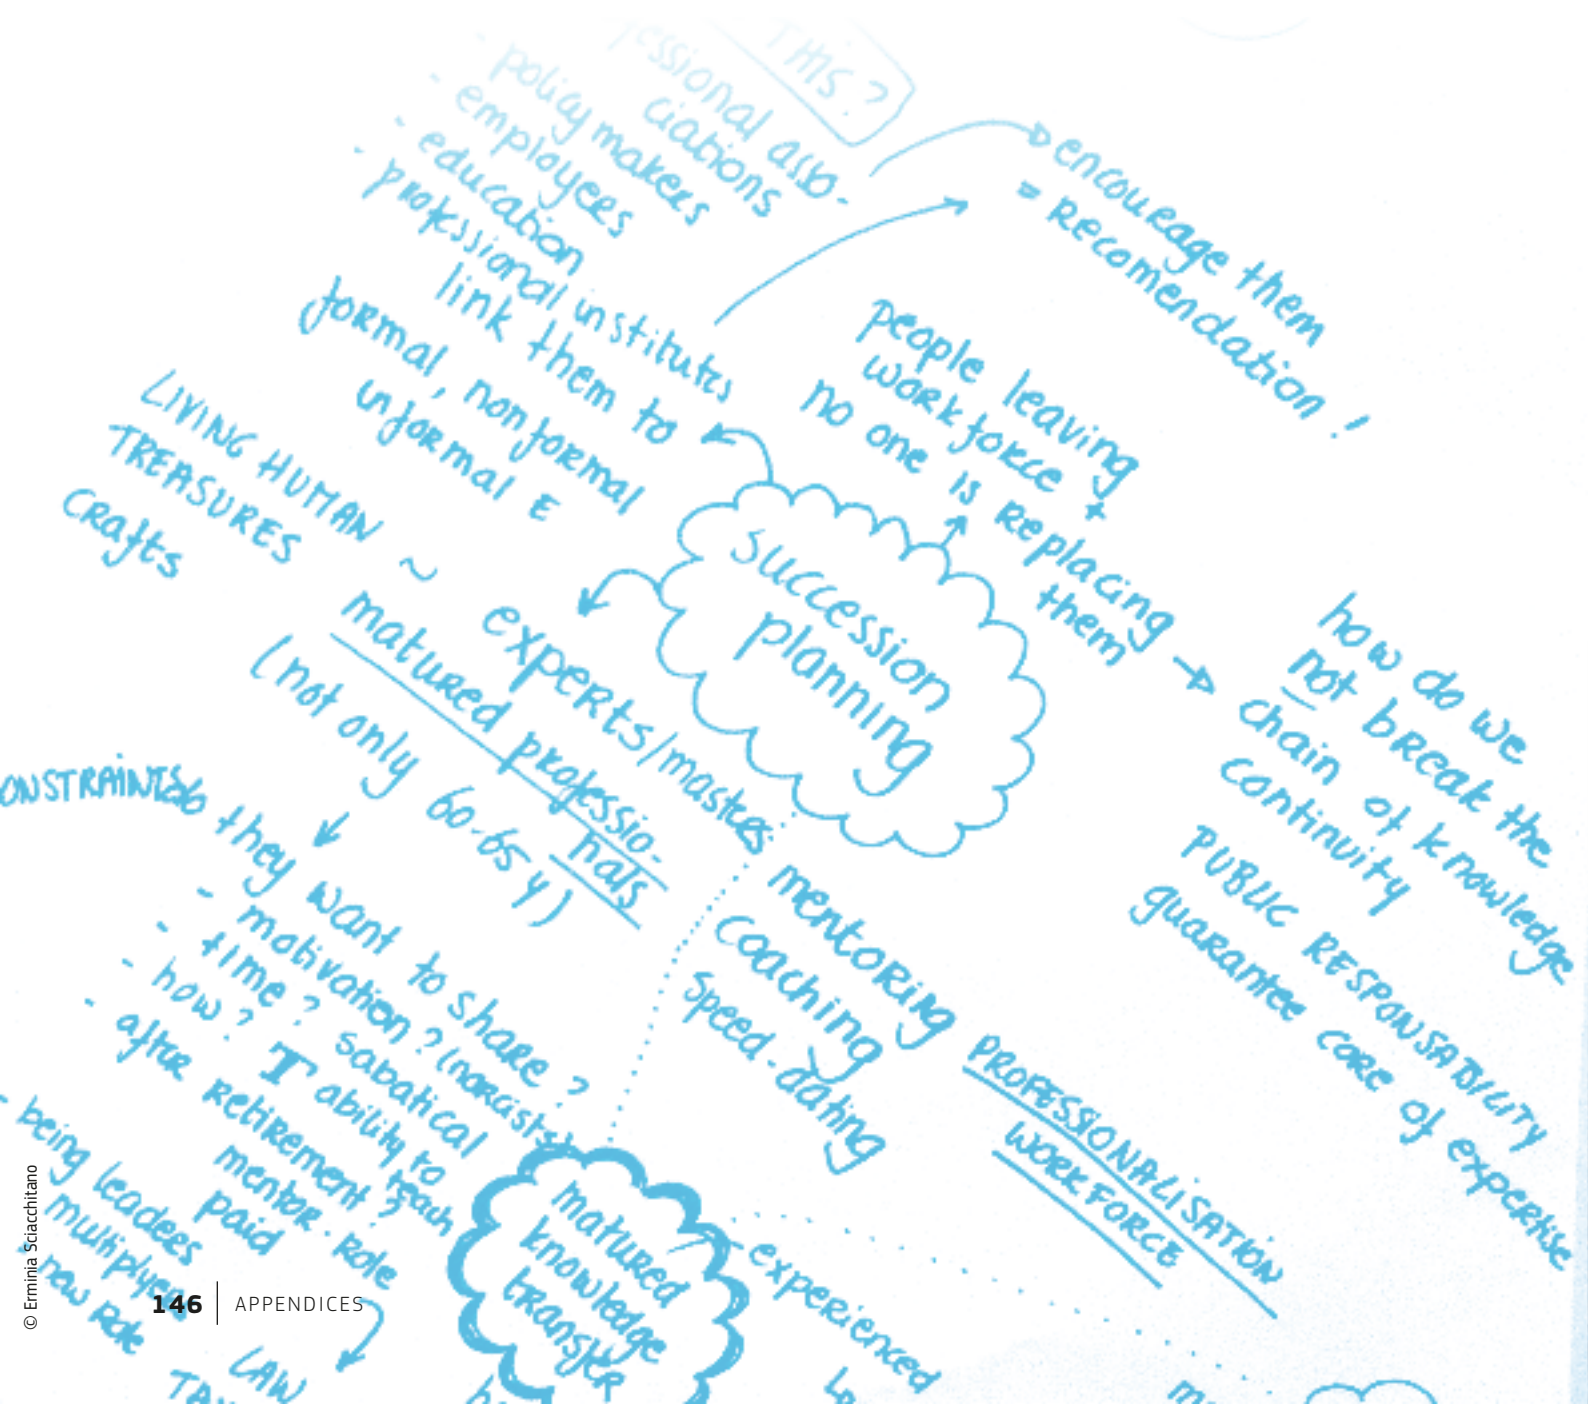 THIS?
asso-
ciations
- policy makers
- employers
- education
- professional institutes
link them to
formal, non formal
informal E
encourage them
= recomendation!
people leaving
workforce +
no one is replacing
them
how do we
not break the
chain of knowledge
continuity
PUBLIC RESPONSABILITY
guarantee core of expertise
succession
planning
LIVING HUMAN
TREASURES
crafts
~ experts/mastres
matured professio-
nals
(not only 60-65 y)
do they want to share?
- motivation?
- time? sabatical
- how? ability to
teach
- after retirement?
mentor-role
paid
- being leaders
multiplyers
- new role
LAW
mentoring
coaching
speed-dating
PROFESSIONALISATION
WORKFORCE
matured
knowledge
transfer
experienced
© Erminia Sciacchitano
146 | APPENDICES